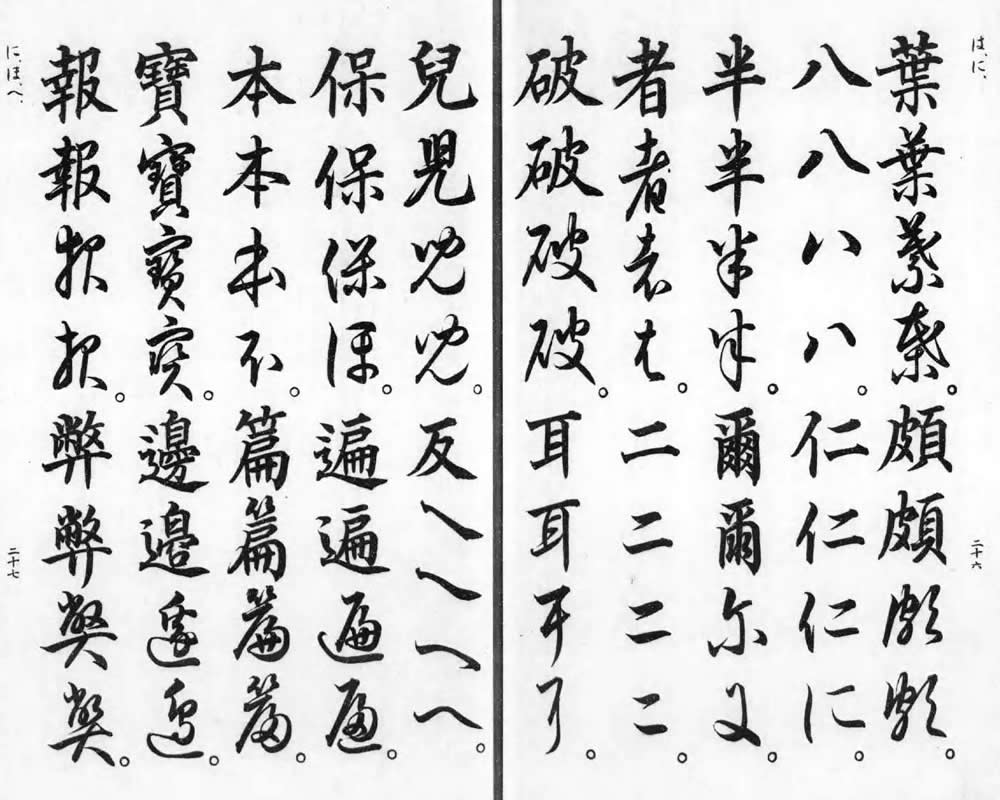 は、に、
葉葉葉葉。頗頗頗頗。
八八八八。仁仁仁に。
半半半半。爾爾尓尓。
者者者は。二二二二。
破破破破。耳耳耳耳。
二十六
兒兒兒兒。反へへへへ。
保保保保。遍遍遍遍。
本本本本。篇篇篇篇。
寶寶寶寶。邊邊邊邊。
報報報報。弊弊弊弊。
に、ほ、へ、
二十七